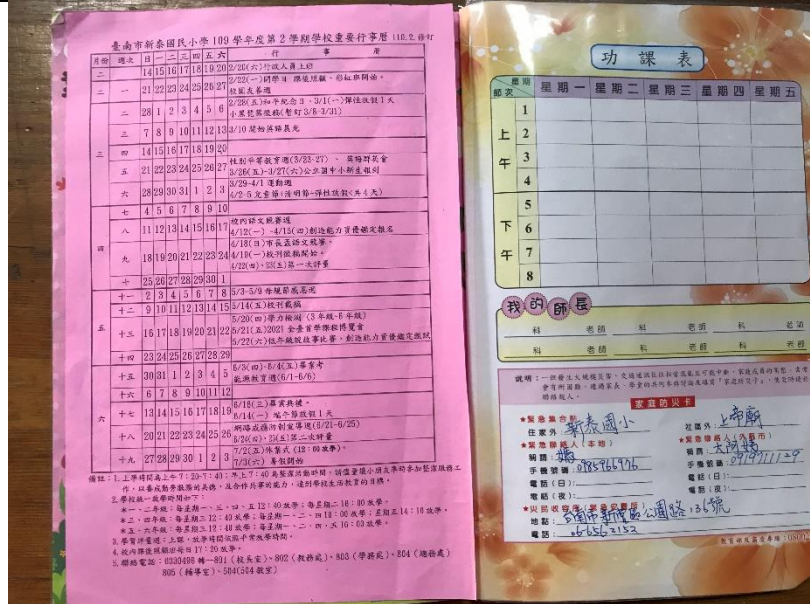 臺南市新泰國民小學 109 學年度第 2 學期學校重要行事曆 110.2.修訂
月份 週次 日 一 二 三 四 五 六 行 事 曆
二 14 15 16 17 18 19 20 2/20(六)行政人員上班
一 21 22 23 24 25 26 27 2/22(一)開學日 課後照顧、彩虹班開始。
校園友善週
三 二 28 1 2 3 4 5 6 2/28(五)和平紀念日、3/1(一)彈性放假1天
三 7 8 9 10 11 12 13 3/10 開始英語晨光
四 14 15 16 17 18 19 20
五 21 22 23 24 25 26 27 性別平等教育週(3/23-27)、
3/26(五)-3/27(六)公立國中小新生報到
六 28 29 30 31 1 2 3 3/29-4/1 運動週
4/2-5 兒童節(清明節-彈性放假<共 4 天)
四 七 4 5 6 7 8 9 10
八 11 12 13 14 15 16 17 校內語文競賽週
4/12(一) -4/15(四)創造能力資優鑑定報名
九 18 19 20 21 22 23 24 4/18(日)市長盃語文競賽。
4/19(一)校刊徵稿開始。
4/22(四)、23(五)第一次評量
十 25 26 27 28 29 30 1
五 十一 2 3 4 5 6 7 8 5/3-5/9 母親節感恩週
十二 9 10 11 12 13 14 15 5/14(五)校刊截稿
十三 16 17 18 19 20 21 22 5/20(四)學力檢測 (3 年級-6 年級)
5/21(五)2021 全臺首學課程博覽會
5/22(六)低年級說故事比賽、創造能力資優鑑定複試
十四 23 24 25 26 27 28 29
六 十五 30 31 1 2 3 4 5 6/3(四)-6/4(五)畢業考
能源教育週(6/1-6/6)
十六 6 7 8 9 10 11 12
十七 13 14 15 16 17 18 19 6/16(三)畢業典禮。
6/14(一) 端午節放假1天
十八 20 21 22 23 24 25 26 網路成癮防制宣導週(6/21-6/25)
第二次評量
十九 27 28 29 30 1 2 3 7/2(五)休業式 (12:00放學)。
7/3(六) 暑假開始
備註:1.上學時間為上午 7:20-7:40;早上 7:40 為整潔活動時間,請儘量讓小朋友準時參加整潔服務工
作,以養成勤勞服務的美德,及合作共事的能力,達到學校生活教育的目標。
2.學校統一放學時間如下:
*一、二年級:每星期一、三、四、五 12:40 放學;每星期二 16:00 放學。
3.學習評量週:上課、放學時間依照平常放學時間。
4.校內課後照顧班每日 17:20 放學。
5.聯絡電話:6330498 轉-801 (校長室)、802 (教務處)、803 (學務處)、804 (總務處)
805 (輔導室)、
功課表
節次 星期 星期一 星期二 星期三 星期四 星期五
上午
1
2
3
4
下午
5
6
7
8
我的師長
科 老師 科 老師 科 老師
科 老師 科 老師 科 老師
家庭防災卡
★緊急集合點
住家外: 新泰國小 社區外: 上帝廟
★緊急聯絡人(本地) ★緊急聯絡人(外縣市)
稱謂: 媽 稱謂:
手機號碼: 手機號碼: 0919711129
電話(日): 電話(日):
電話(夜): 電話(夜):
地點: 台南市新營區公園路136號
電話: